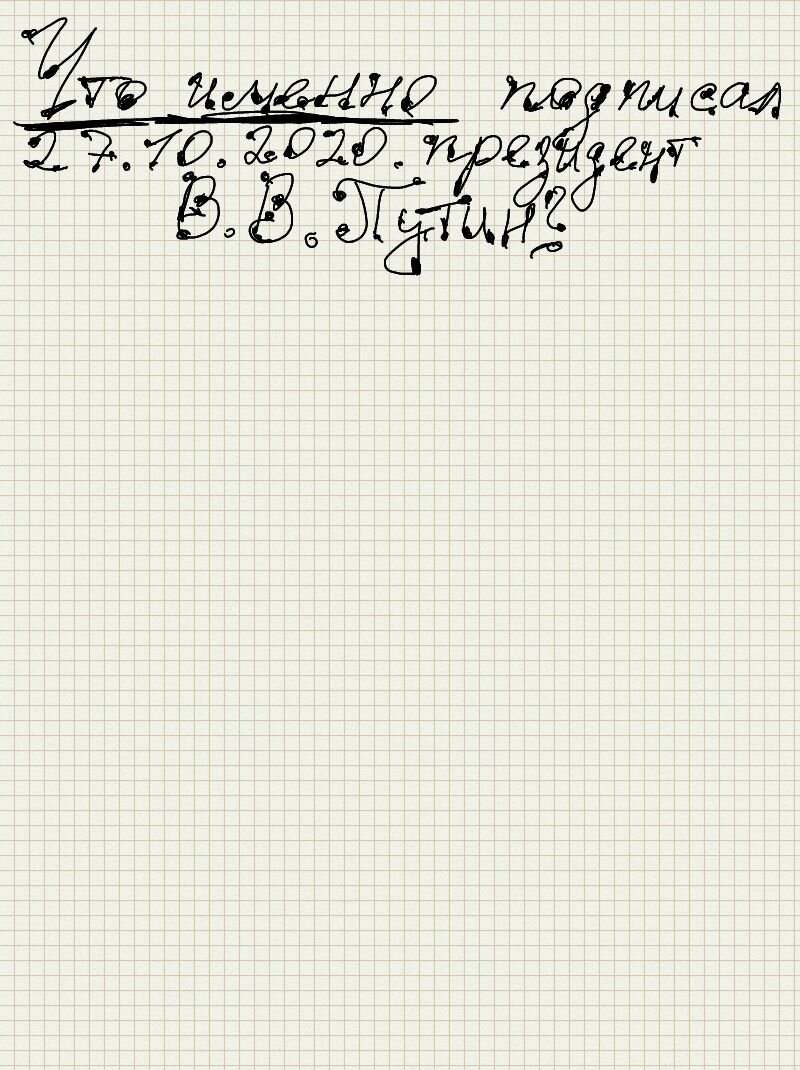 Что именно подписал
27.10.2020. президент
В.В. Путин?